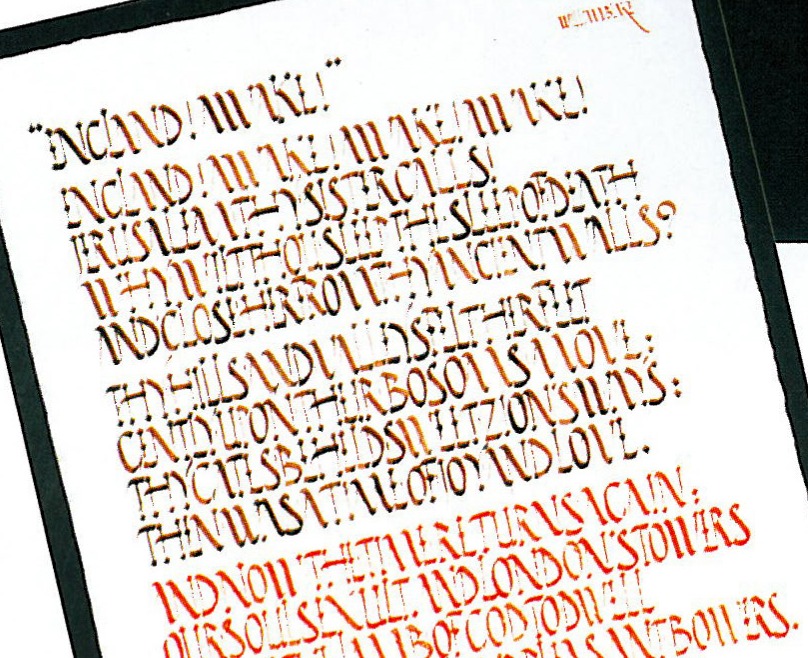 "ENGLAND! AWAKE!"
ENGLAND! AWAKE! AWAKE! AWAKE!
JERUSALEM THY SISTER CALLS!
WHY WILT THOU SLEEP THE SLEEP OF DEATH
AND CLOSE HER FROM THY ANCIENT WALLS?
THY HILLS AND VALLEYS FELT THEIR FEET
GENTLY UPON THEIR BOSOMS MOVE:
THY GATES BEHELD SWEET ZION'S WAYS:
THEN WAS A TIME OF JOY AND LOVE.
AND NOW THE TIME RETURNS AGAIN:
OUR SOULS EXULT. AND LONDON'S TOWERS
LAMB OF GOD TO DWELL
PLEASANT BOWERS.